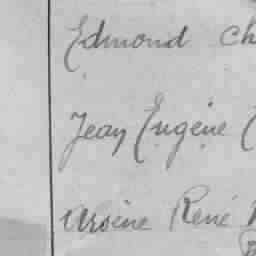 Edmond Ch
Jean Eugène
Arsène René